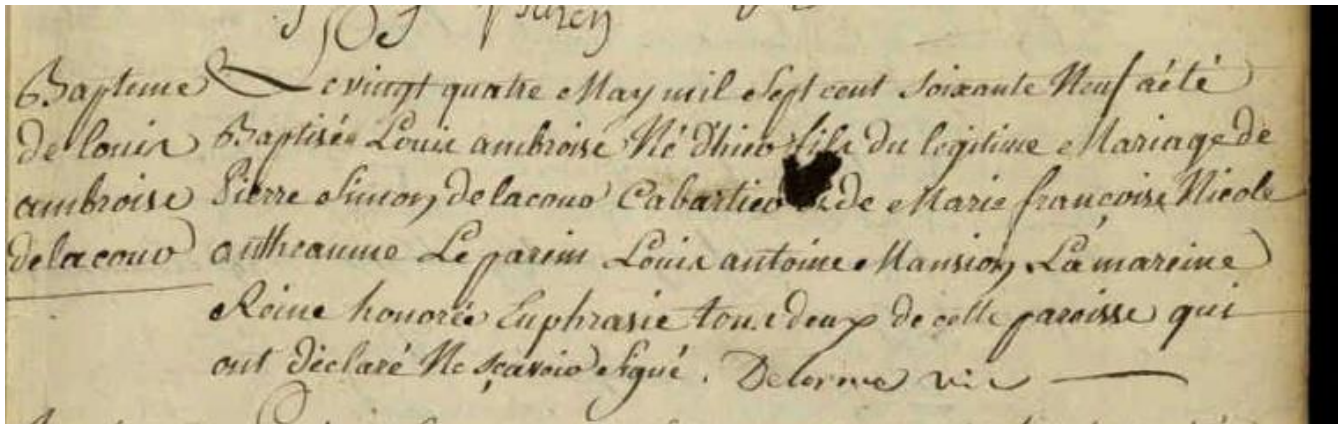 Bapteme
de louis
ambroise
delacour
Le vingt quatre May mil Sept cent Soixante Neuf a été
Baptisée Louis ambroise Né d'hier fils du legitime Mariage de
Pierre Simon delacour Cabartier et de Marie françoise Nicole
antheaume Le parein Louis antoine Mansion La mareine
Reine honorée Euphrasie tous deux de cette paroisse qui
ont déclaré Ne sçavoir signé. Delorme vic